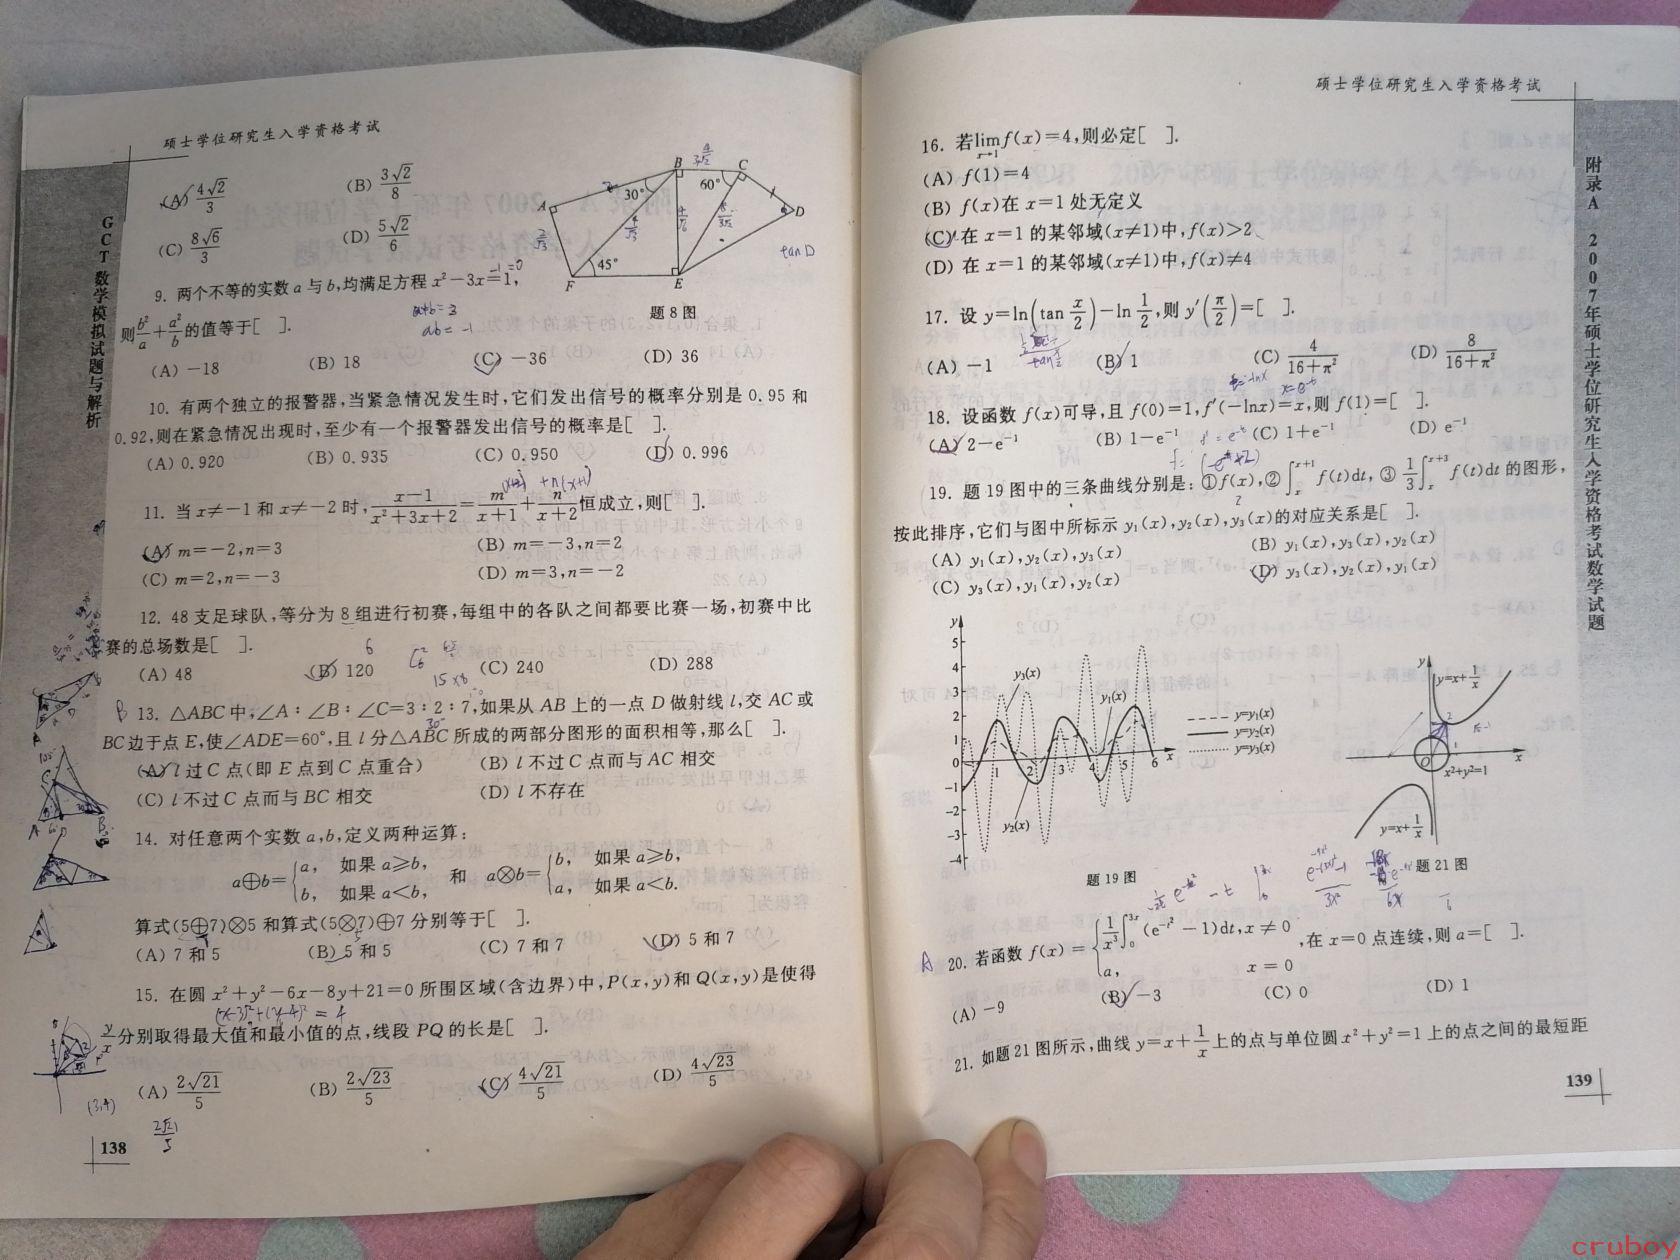 硕士学位研究生入学资格考试
GCT数学模拟试题与解析
(A) 4√2/3
(B) 3√2/8
(C) 8√6/3
(D) 5√2/6
A
B
C
D
E
F
30°
60°
45°
tan D
题 8 图
9. 两个不等的实数 a 与 b,均满足方程 x²-3x=1,
-1=0
则 b²/a + a²/b 的值等于[ ].
a+b=3
ab=-1
(A) -18
(B) 18
(C) -36
(D) 36
10. 有两个独立的报警器,当紧急情况发生时,它们发出信号的概率分别是 0.95 和
0.92,则在紧急情况出现时,至少有一个报警器发出信号的概率是[ ].
(A) 0.920
(B) 0.935
(C) 0.950
(D) 0.996
11. 当 x≠-1 和 x≠-2 时, (x-1)/(x²+3x+2) = m/(x+1) + n/(x+2) 恒成立,则[ ].
(A) m=-2,n=3
(B) m=-3,n=2
(C) m=2,n=-3
(D) m=3,n=-2
12. 48 支足球队,等分为 8 组进行初赛,每组中的各队之间都要比赛一场,初赛中比
赛的总场数是[ ].
6
(A) 48
(B) 120
(C) 240
(D) 288
15×8
B 13. △ABC 中,∠A∶∠B∶∠C=3∶2∶7,如果从 AB 上的一点 D 做射线 l,交 AC 或
30°
BC 边于点 E,使∠ADE=60°,且 l 分△ABC 所成的两部分图形的面积相等,那么[ ].
(A) l 过 C 点(即 E 点到 C 点重合)
(B) l 不过 C 点而与 AC 相交
(C) l 不过 C 点而与 BC 相交
(D) l 不存在
14. 对任意两个实数 a,b,定义两种运算:
a⊕b={a, 如果 a≥b, 和 a⊗b={b, 如果 a≥b,
b, 如果 a<b, a, 如果 a<b.
算式(5⊕7)⊗5 和算式(5⊗7)⊕7 分别等于[ ].
(A) 7 和 5
(B) 5 和 5
(C) 7 和 7
(D) 5 和 7
15. 在圆 x²+y²-6x-8y+21=0 所围区域(含边界)中,P(x,y)和 Q(x,y)是使得
(x-3)²+(y-4)²=4
y/x 分别取得最大值和最小值的点,线段 PQ 的长是[ ].
(A) 2√21/5
(B) 2√23/5
(C) 4√21/5
(D) 4√23/5
(3,4)
2√21/5
138
硕士学位研究生入学资格考试
附录A 2007年硕士学位研究生入学资格考试数学试题
16. 若 lim f(x)=4,则必定[ ].
x→1
(A) f(1)=4
(B) f(x)在 x=1 处无定义
(C) 在 x=1 的某邻域(x≠1)中,f(x)>2
(D) 在 x=1 的某邻域(x≠1)中,f(x)≠4
17. 设 y=ln(tan x/2)-ln 1/2,则 y′(π/2)=[ ].
(A) -1
(B) 1
(C) 4/(16+π²)
(D) 8/(16+π²)
t=-lnx
x=e⁻ᵗ
18. 设函数 f(x)可导,且 f(0)=1,f′(-lnx)=x,则 f(1)=[ ].
(A) 2-e⁻¹
(B) 1-e⁻¹
(C) 1+e⁻¹
(D) e⁻¹
19. 题 19 图中的三条曲线分别是:①f(x),②∫ₓˣ⁺¹ f(t)dt,③ 1/3 ∫ₓˣ⁺³ f(t)dt 的图形,
按此排序,它们与图中所标示 y₁(x),y₂(x),y₃(x)的对应关系是[ ].
(A) y₁(x),y₂(x),y₃(x)
(B) y₁(x),y₃(x),y₂(x)
(C) y₃(x),y₁(x),y₂(x)
(D) y₃(x),y₂(x),y₁(x)
y
5
4
3
2
1
0
-1
-2
-3
-4
1 2 3 4 5 6 x
y₃(x)
y₁(x)
y₂(x)
y=y₁(x)
y=y₂(x)
y=y₃(x)
题 19 图
y
y=x+1/x
O
x
x²+y²=1
y=x+1/x
题 21 图
A 20. 若函数 f(x)={1/x³ ∫₀³ˣ (e^(-t²)-1)dt,x≠0 ,在 x=0 点连续,则 a=[ ].
a, x=0
(A) -9
(B) -3
(C) 0
(D) 1
21. 如题 21 图所示,曲线 y=x+1/x 上的点与单位圆 x²+y²=1 上的点之间的最短距
139
cruboy